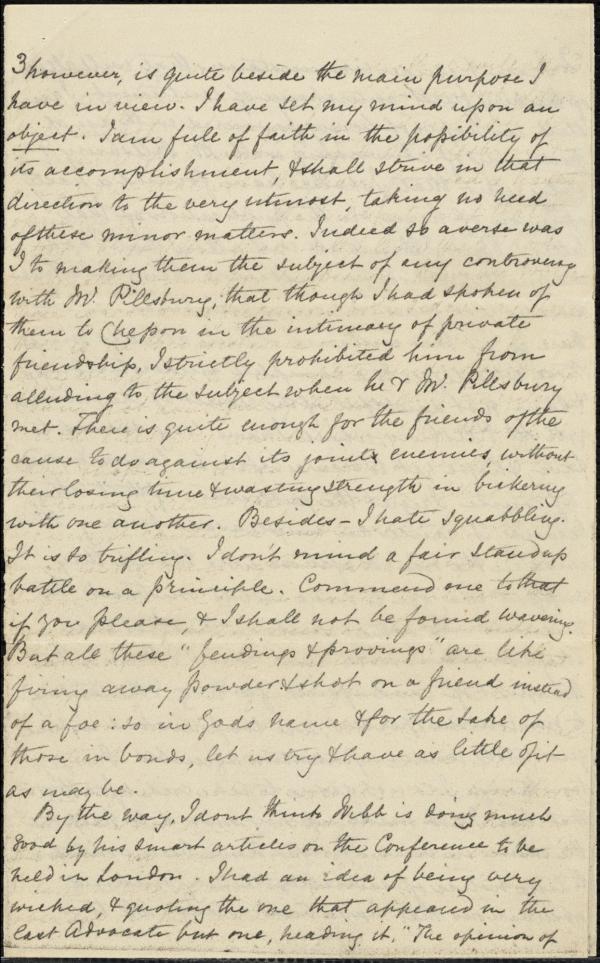 3 however, is quite beside the main purpose I
have in view. I have set my mind upon an
object. I am full of faith in the possibility of
its accomplishment, & shall strive in that
direction to the very utmost, taking no heed
of these minor matters. Indeed so averse was
I to making them the subject of any controversy
with Mr. Pillsbury, that though I had spoken of
them to Chesson in the intimacy of private
friendship, I strictly prohibited him from
alluding to the subject when he & Mr. Pillsbury
met. There is quite enough for the friends of the
cause to do against its joint enemies, without
their losing time & wasting strength in bickering
with one another. Besides – I hate squabbling.
It is so trifling. I don't mind a fair stand up
battle on a principle. Commend me to that
if you please, & I shall not be found wavering.
But all these "fendings & provings" are like
firing away powder & shot on a friend instead
of a foe: so in God's name & for the sake of
those in bonds, let us try & have as little of it
as may be.
By the way, I dont think Webb is doing much
good by his smart articles on the Conference to be
held in London. I had an idea of being very
wicked, & quoting the one that appeared in the
last Advocate but one, heading it, "The opinion of